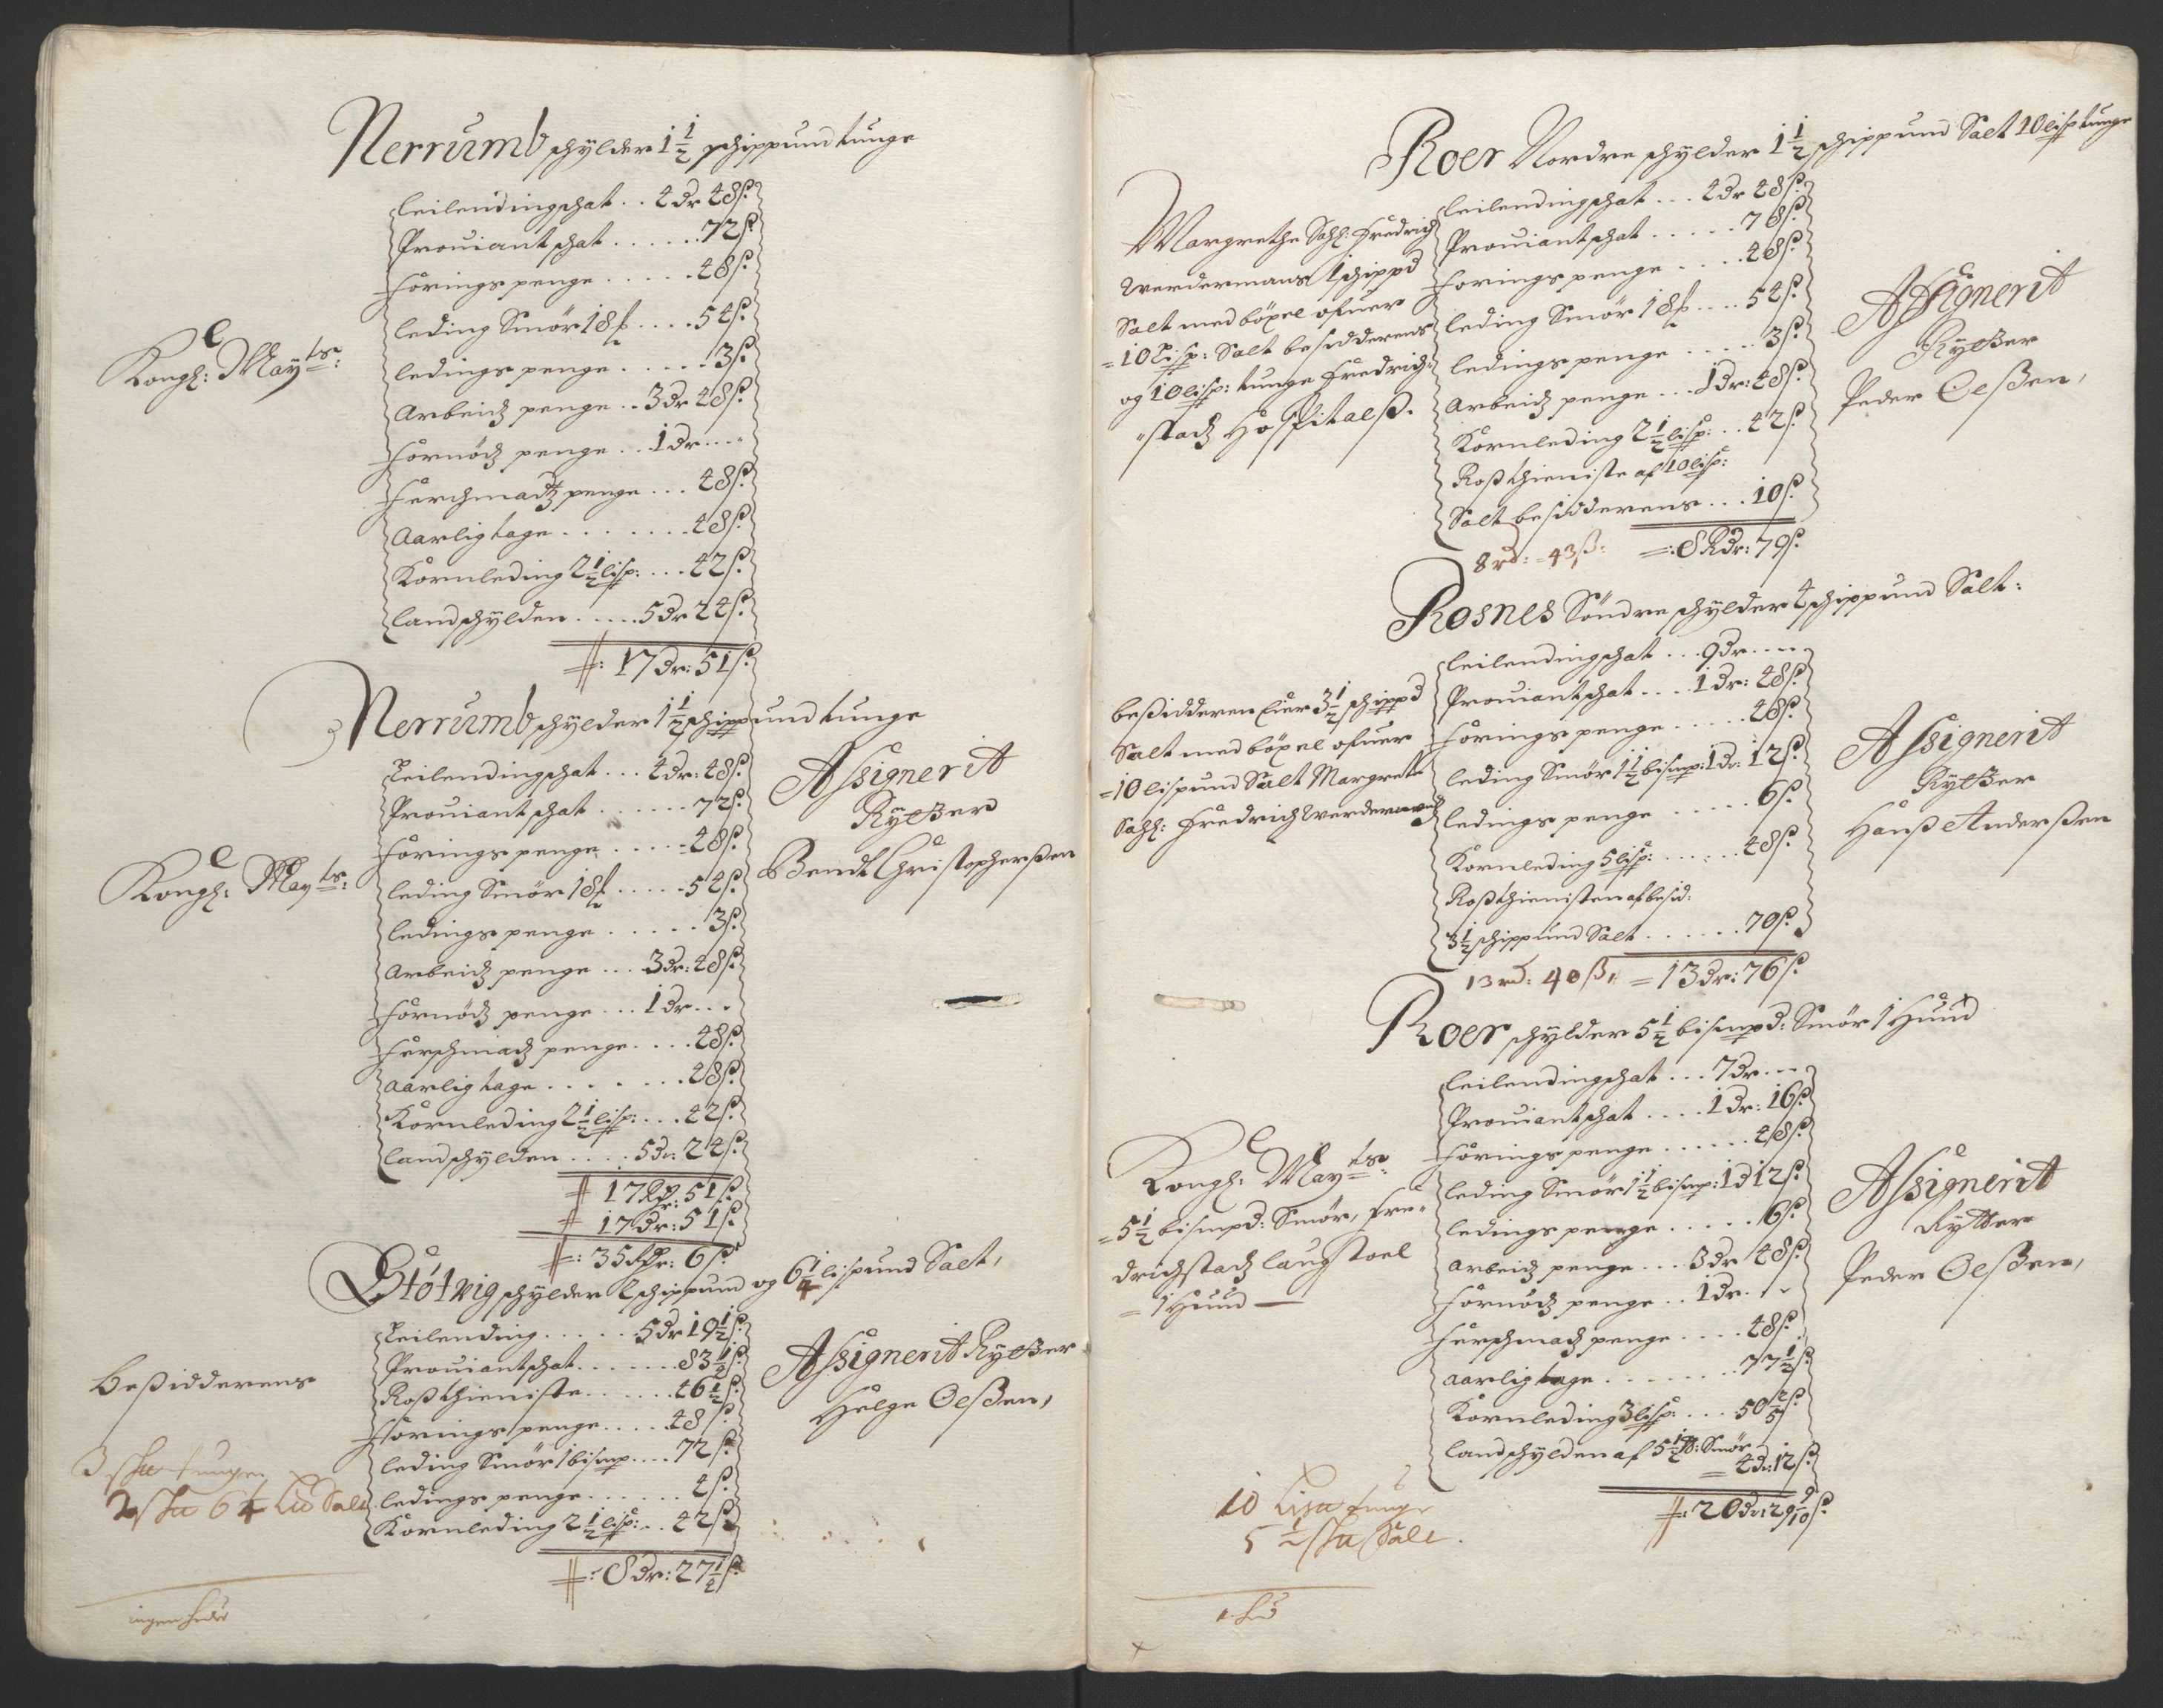 Nerrumb schylder 1 1/2 schippund tunge
Kongl: Mayts:
Leilendingschat . . 4 dr 48 ß
Prouiantschat . . . . . 72 ß
Foringspenge . . . . . 48 ß
leding Smör 18 ℔ . . . . 54 ß
ledingspenge . . . . . 3 ß
Arbeidz penge . . 3 dr 48 ß
Fornödz penge . . 1 dr . . . .
Ferschmadtz penge . . . 48 ß
Aarlig tage . . . . . . . 48 ß
Kornleding 2 1/2 lisp: . . . 42 ß
Landschylden . . . . . 5 dr 24 ß
17 dr: 51 ß
Nerrumb schylder 1 1/2 schippund tunge
Kongl: Mayts:
Leilendingschat . . . 4 dr: 48 ß
Prouiantschat . . . . . . 72 ß
Foringspenge . . . . . 48 ß
leding Smör 18 ℔ . . . . . 54 ß
ledingspenge . . . . . 3 ß
Arbeidz penge . . . 3 dr: 48 ß
Fornödz penge . . . 1 dr . . .
Ferschmadz penge . . . . 48 ß
Aarlig tage . . . . . . . 48 ß
Kornleding 2 1/2 lisp: . . . 42 ß
Landschylden . . . . 5 dr: 24 ß
17 Rdr: 51 ß
17 dr: 51 ß
35 Rdr: 6 ß
Assignerit
Rytter
Bendt Christopherßen
Stötvig schylder 2 schippund og 6 1/4 lispund Salt,
Beßidderens
Leilending . . . . . 5 dr 19 1/2 ß
Prouiantschat . . . . . . . 83 1/2 ß
Roßthieniste . . . . . . 46 1/2 ß
Foringspenge . . . . 48 ß
leding Smör 1 bismp . . . . 72 ß
ledingspenge . . . . . . 4 ß
Kornleding 2 1/2 lisp: . . 42 ß
8 dr: 27 1/2 ß
Assignerit Rytter
Helge Oelßen,
3 tunge
2 6 1/4 Salt
ingen huder
Roer Nordre schylder 1 1/2 schippund Salt 10 lisp tunge
Margrethe Sahl: Fredrich
Werdermans 1 schippd
Salt med böxel ofuer
10 Lisp: Salt besidderens
og 10 lisp: tunge Fredrich-
stadz Hospitalß.
Leilendingschat . . . 4 dr 48 ß
Prouiantschat . . . . . 78 ß
Foringspenge . . . . 48 ß
leding Smör 18 ℔ . . . . 54 ß
ledingspenge . . . . . 3 ß
Arbeidz penge . . . 1 dr: 48 ß
Kornleding 2 1/2 lisp: . . 42 ß
Roßthieniste af 10 lisp:
Salt besidderens . . . 10 ß
8 Rdr: 79 ß
8 rd: 43 ß:
Assignerit
Rytter
Peder Oelßen,
Rosnes Söndre schylder 4 schippund Salt:
beßidderen Eier 3 1/2 schippd
Salt med böxel ofuer
10 lispund Salt Margrete
Sahl: Fredrich Werdermands
Leilendingschat . . . 9 dr . . . .
Prouiantschat . . . . 1 dr: 48 ß
Foringspenge . . . . . 48 ß
leding Smör 1 1/2 bismp: 1 dr: 12 ß
ledingspenge . . . . . 6 ß
Kornleding 5 lisp: . . . . . . 48 ß
Roßthienisten af besid:
3 1/2 schippund Salt . . . . . . 70 ß
13 rd: 40 ß, = 13 dr: 76 ß
Assignerit
Rytter
Hanß Anderßen
Roer schylder 5 1/2 bismpd: Smör 1 Huud
Kongl: Mayts:
5 1/2 bismpd: Smör, Fre-
drichstadz laugstoel
1 Huud
Leilendingschat . . . 7 dr . . . .
Prouiantschat . . . . 1 dr: 16 ß
Foringspenge . . . . . . 48 ß
leding Smör 1 1/2 bismp: 1 d 12 ß
ledingspenge . . . . . 6 ß
Arbeidz penge . . . 3 dr 48 ß
Fornödz penge . . 1 dr . . .
Ferschmadz penge . . . . 48 ß
Aarlig tage . . . . . . . 77 1/2 ß
Kornleding 3 lisp: . . . 50 2/5 ß
Landschylden af 5 1/2 ℔: Smör
4 dr: 12 ß
20 dr: 29 9/10 ß
Assignerit
Rytter
Peder Oelßen,
10 tunge
5 1/2 Salt.
1 hud